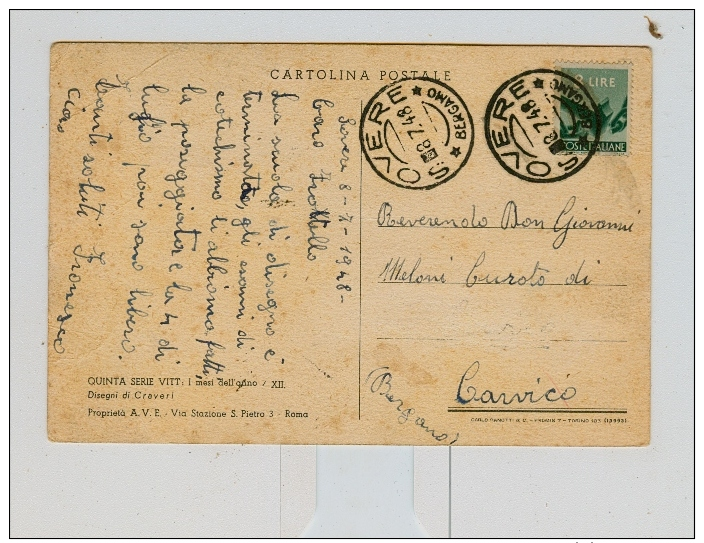 CARTOLINA POSTALE
Sovere 8-7-1948-
Caro Fratello
La scuola di disegno è
terminata, gli esami di
catechismo li abbiamo fatti,
la passeggiata e la 4 di
luglio poi sono libero.
Tanti saluti Francesco
Ciao
QUINTA SERIE VITT: I mesi dell'anno / XII.
Disegni di Craveri
Proprietà A. V. E. - Via Stazione S. Pietro 3 - Roma
SOVERE
8.7.48
★ BERGAMO ★
SOVERE
8.7.48
★ BERGAMO
8 LIRE
POSTE ITALIANE
Reverendo Don Giovanni
Meloni Curato di
Carvico
(Bergamo)